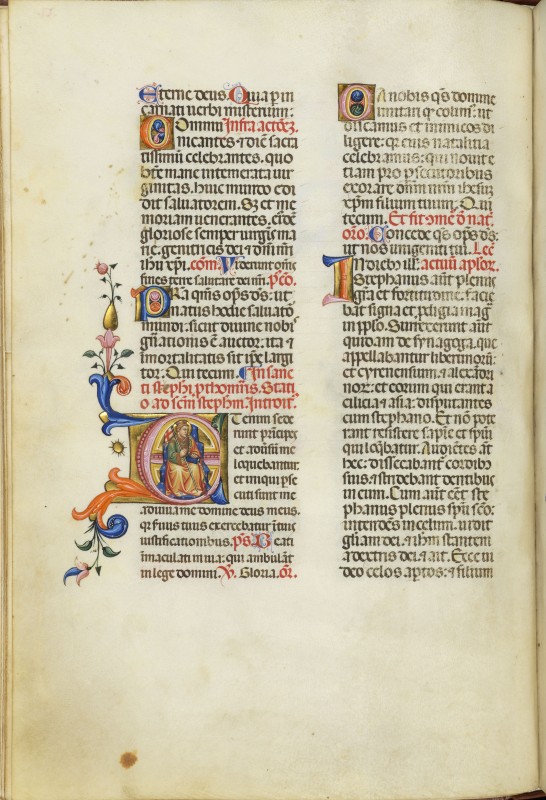 Eterne deus. Quia per in
carnati verbi misterium:
Communi Infra actionem.
nicantes ⁊ diem sacra
tissimum celebrantes. quo
beate marie intemerata uir
ginitas. huic mundo edi
dit saluatorem. Sꝫ et me
moriam uenerantes. eiusdem
gloriose semper uirginis ma
rie. genitricis dei ⁊ domini nostri
ihu xpi. com. Viderunt omnes
fines terre salutare dei nostri. pco.
PRa quesumus omps ds: ut
natus hodie saluator
mundi. sicut diuine nobis
generationis est auctor: ita ⁊
immortalitatis sit ipse largi
tor: Qui tecum. In sanc
ti stephi pthomris. Stati
o ad scm stephm Introit.
ETenim sede
runt principes
et aduersum me
loquebantur.
et iniqui pse
cuti sunt me
adiuua me domine deus meus.
quia seruus tuus exercebatur in tuis
iustificationibus. ps. Beati
immaculati in uia: qui ambulant
in lege domini. V. Gloria. or.
DA nobis qs domine
imitari quod colimus: ut
discamus et inimicos di
ligere: quia eius natalitia
celebramus: qui nouit e
tiam pro persecutoribus
exorare dominum nostrum ihesum
xpm filium tuum. Qui
tecum. Et fit comem de nat.
oro. Concede qs omps ds:
ut nos unigeniti tui. Lec.
IN diebus illis: actuum aplor.
Stephanus autem plenus
gratia et fortitudine. facie
bat signa et prodigia magna
in populo. Surrexerunt autem
quidam de synagoga. que
appellabantur libertinorum:
et cyrenensium. et alexandri
norum: et eorum qui erant a
cilicia et asia: disputantes
cum stephano. Et non pote
rant resistere sapientie et spiritui
qui loquebatur. Audientes autem
hec: dissecabantur cordibus
suis. et stridebant dentibus
in eum. Cum autem esset ste
phanus plenus spiritu sancto:
intendens in celum. uidit
gloriam dei. et ihm stantem
a dextris dei. et ait. Ecce ui
deo celos apertos: et filium